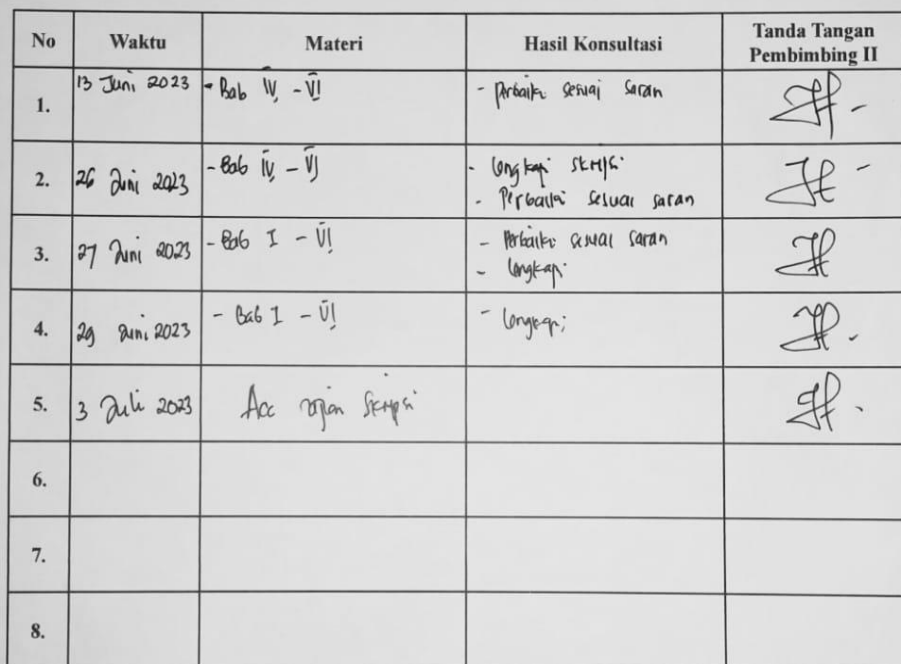 No Waktu Materi Hasil Konsultasi Tanda Tangan Pembimbing II
1. 13 Juni 2023 - Bab IV - VI - Perbaiki sesuai saran
2. 26 Juni 2023 - Bab IV - VI - Lengkapi skripsi
- Perbaiki sesuai saran
3. 27 Juni 2023 - Bab I - VI - Perbaiki sesuai saran
- Lengkapi
4. 29 Juni 2023 - Bab I - VI - Lengkapi
5. 3 Juli 2023 Acc ujian skripsi
6.
7.
8.